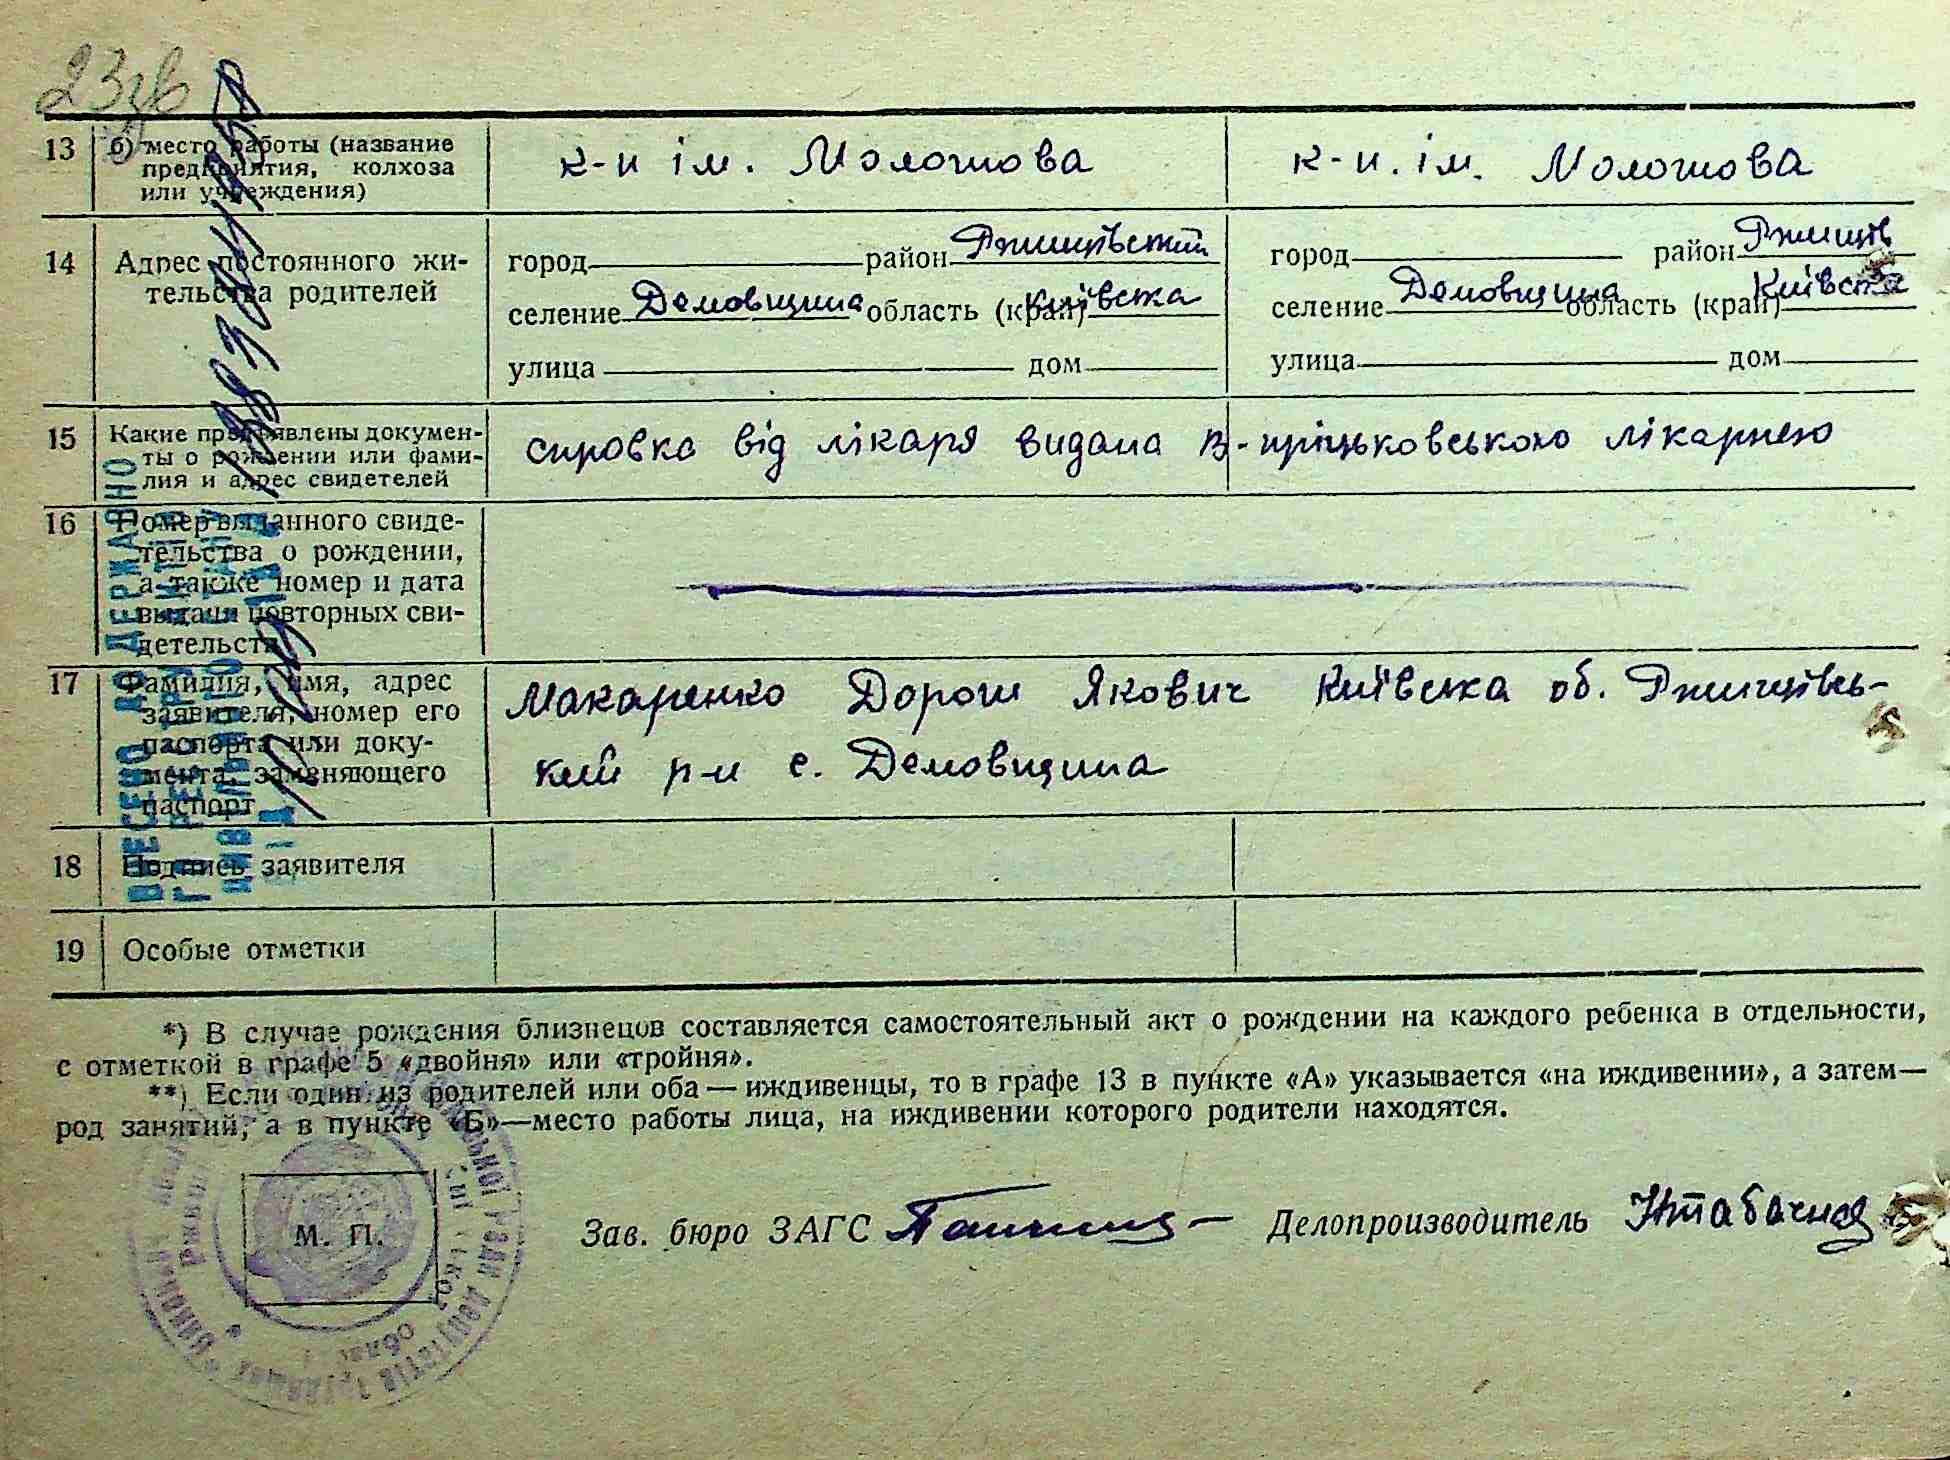 23зв
13 б) место работы (название предприятия, колхоза или учреждения) к-п ім. Молотова к-п. ім. Молотова
14 Адрес постоянного жительства родителей
город район Ржищівский город район Ржищів
селение Демовщина область (край) Київська селение Демовщина область (край) Київська
улица дом улица дом
15 Какие предъявлены документы о рождении или фамилия и адрес свидетелей
справка від лікаря видана лікарнею
16 Номер выданного свидетельства о рождении, а также номер и дата выдачи повторных свидетельств
17 Фамилия, имя, адрес заявителя, номер его паспорта или документа, заменяющего паспорт
Макаренко Дорош Якович Київська об. Ржищівсь-
кий р-н с. Демовщина
18 Подпись заявителя
19 Особые отметки
*) В случае рождения близнецов составляется самостоятельный акт о рождении на каждого ребенка в отдельности,
с отметкой в графе 5 «двойня» или «тройня».
**) Если один из родителей или оба — иждивенцы, то в графе 13 в пункте «А» указывается «на иждивении», а затем—
род занятий, а в пункте «Б»—место работы лица, на иждивении которого родители находятся.
М. П.
Зав. бюро ЗАГС Делопроизводитель
ВНЕСЕНО ДО ДЕРЖАВНОГО